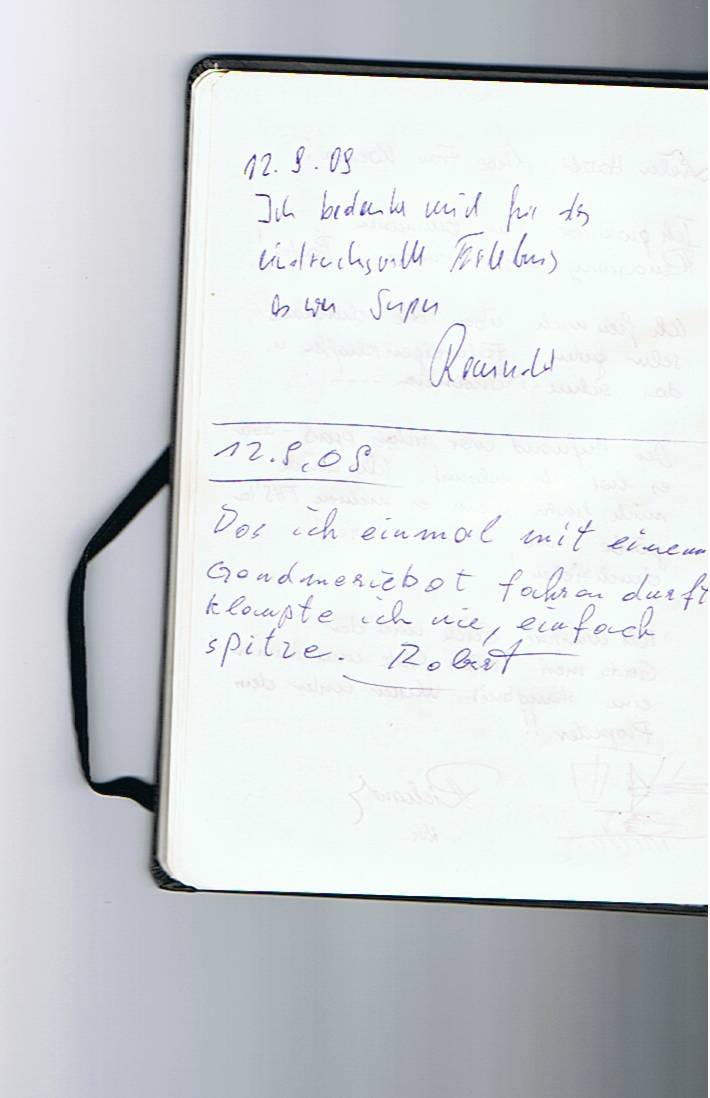 12.9.09
Ich bedanke mich für das
eindrucksvolle Erlebnis
es war Super
12.9.09
Das ich einmal mit einem
Gondmeriebot fahren durft
klaupte ich nie, einfach
spitze. Robert